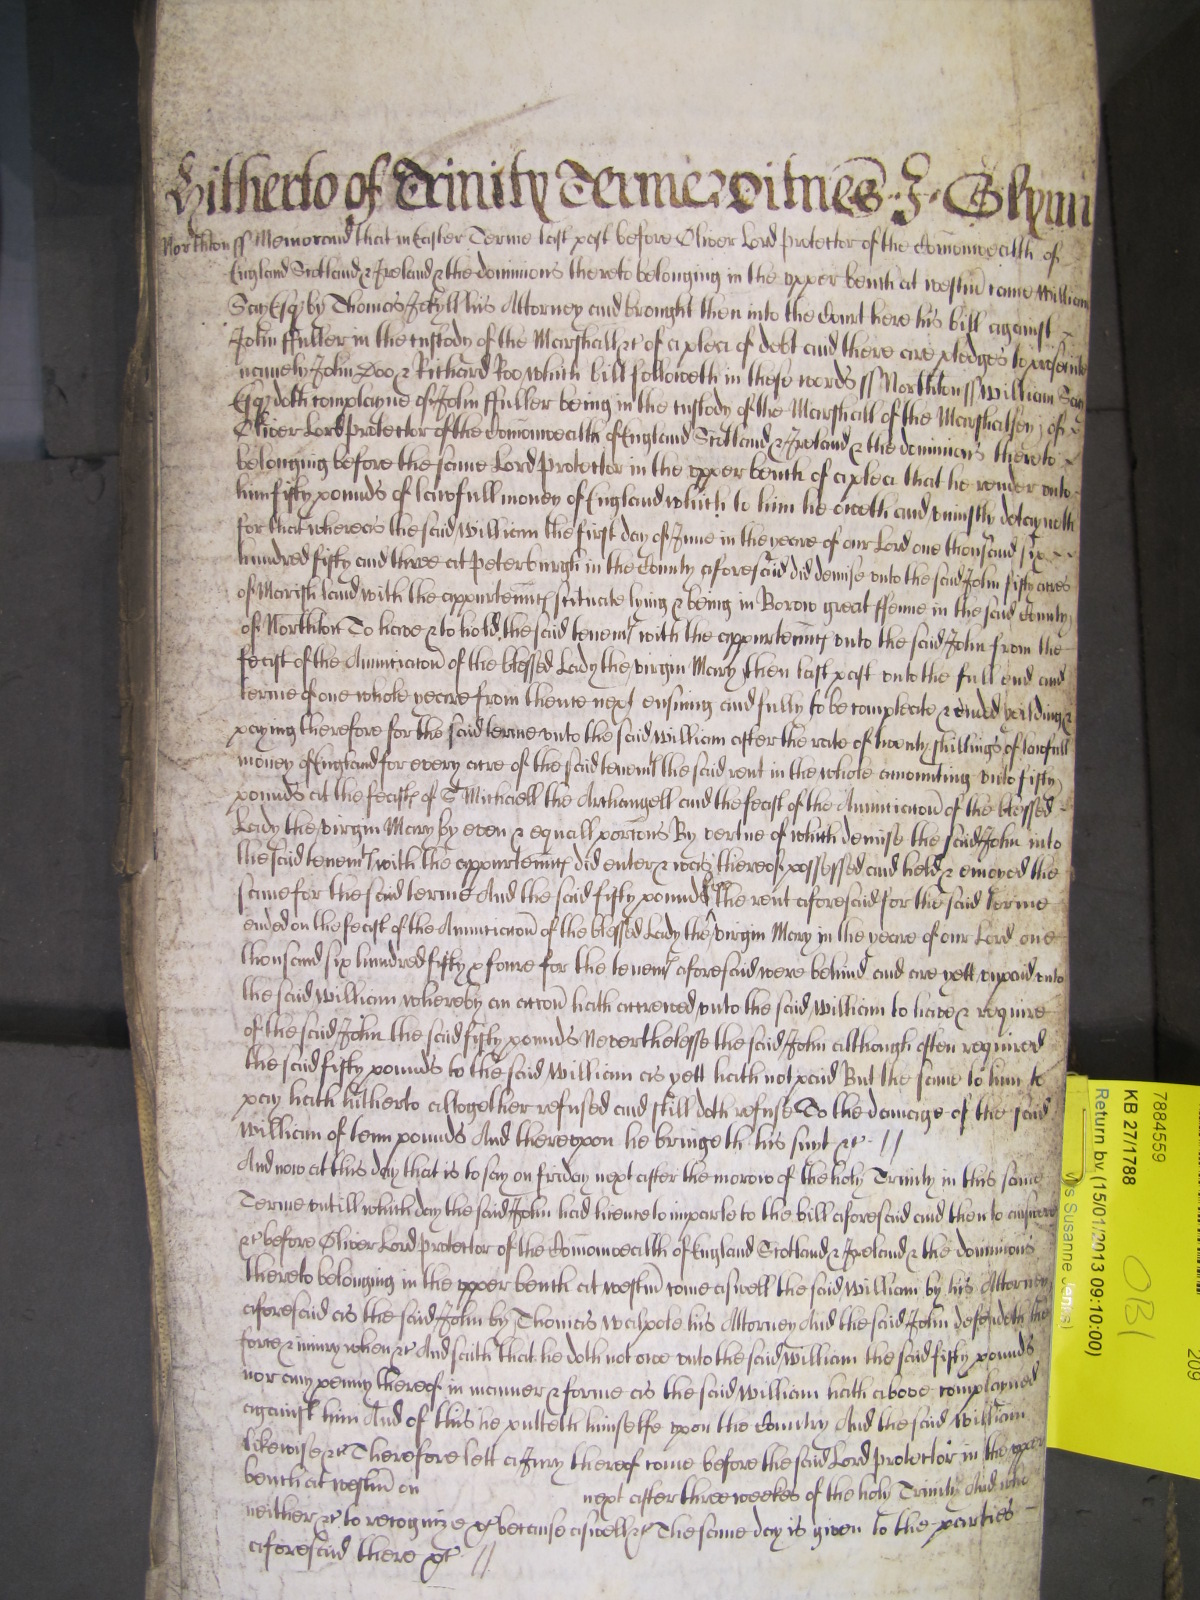 Hitherto of Trinity Terme Witnes J. Glynn
Northton ss Memorand that in Easter Terme last past before Oliver Lord Protector of the Comonwealth of
England Scotland & Ireland & the dominions thereto belonging in the upper bench at Westm came William
Say Esqr by Thomas Jekyll his Attorney and brought then into the Court here his bill against
John Ffuller in the custody of the Marshall &c of a plea of debt and there are pledges to prosecute
namely John Doo & Richard Roo which bill followeth in these words ss Northton ss William Say
Esqr doth complayne of John Ffuller being in the custody of the Marshall of the Marshalsey of
Oliver Lord Protector of the Comonwealth of England Scotland & Ireland & the dominions thereto
belonging before the same Lord Protector in the upper bench of a plea that he render unto
him fifty pounds of lawfull money of England which to him he oweth and uniustly detayneth
for that whereas the said William the first day of June in the yeare of our Lord one thousand six
hundred fifty and three at Peterburgh in the County aforesaid did demise unto the said John fifty acres
of Marish land with the appurtennts scituate lying & being in Borow great ffenne in the said County
of Northton To have & to hold the said tenemts with the appurtennts unto the said John from the
feast of the Annunciacon of the blessed Lady the virgin Mary then last past unto the full end and
terme of one whole yeare from thence next ensuing and fully to be compleate & ended yeilding &
paying therefore for the said terme unto the said William after the rate of twenty shillings of lawfull
money of England for every acre of the said tenemts the said rent in the whole amounting unto fifty
pounds at the feasts of St Michaell the Archangell and the feast of the Annunciacon of the blessed
Lady the virgin Mary by even & equall porcions By vertue of which demise the said John into
the said tenemts with the appurtennts did enter & was thereof possessed and held & enioyed the
same for the said terme And the said fifty pounds of the rent aforesaid for the said terme
ended on the feast of the Annunciacon of the blessed Lady the virgin Mary in the yeare of our Lord one
thousand six hundred fifty & foure for the tenemts aforesaid were behind and are yett unpaid unto
the said William whereby an accon hath accrewed unto the said William to have & require
of the said John the said fifty pounds Neverthelesse the said John although often required
the said fifty pounds to the said William as yett hath not paid But the same to him to
pay hath hitherto altogether refused and still doth refuse To the damage of the said
William of tenn pounds And thereupon he bringeth his suyt &c //
And now at this day that is to say on friday next after the morow of the holy Trinity in this same
Terme untill which day the said John had licence to imparle to the bill aforesaid and then to answere
&c before Oliver Lord Protector of the Comonwealth of England Scotland & Ireland & the dominions
thereto belonging in the upper bench at Westm come aswell the said William by his Attorney
aforesaid as the said John by Thomas Walpole his Attorney And the said John defendeth the
force & iniury when &c And saith that he doth not owe unto the said William the said fifty pounds
nor any penny thereof in manner & forme as the said William hath above complayned
against him And of this he putteth himselfe upon the Country And the said William
likewise &c Therefore lett a Jury thereof come before the said Lord Protector in the upper
bench at Westm on next after three weekes of the holy Trinity And who
neither &c to recognize &c because aswell &c The same day is given to the parties
aforesaid there &c //
7884559
KB 27/1788
Return by (15/01/2013 09:10:00)
s Susanne Jenks)
OBI
209